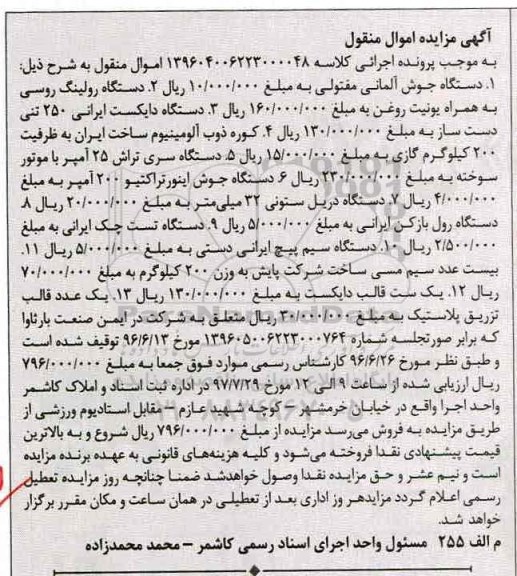 آگهی مزایده اموال منقول
به موجب پرونده اجرائی کلاسه ۱۳۹۶۰۴۰۰۶۲۲۳۰۰۰۰۴۸ اموال منقول به شرح ذیل:
۱. دستگاه جوش آلمانی مفتولی به مبلغ ۱۰/۰۰۰/۰۰۰ ریال ۲. دستگاه رولینگ روسی
به همراه یونیت روغن به مبلغ ۱۶۰/۰۰۰/۰۰۰ ریال ۳. دستگاه دایکست ایرانی ۲۵۰ تنی
دست ساز به مبلغ ۱۳۰/۰۰۰/۰۰۰ ریال ۴. کوره ذوب آلومینیوم ساخت ایران به ظرفیت
۲۰۰ کیلوگرم گازی به مبلغ ۱۵/۰۰۰/۰۰۰ ریال ۵. دستگاه سری تراش ۲۵ آمپر با موتور
سوخته به مبلغ ۲۳۰/۰۰۰/۰۰۰ ریال ۶. دستگاه جوش اینورتراکتیو ۲۰۰ آمپر به مبلغ
۴/۰۰۰/۰۰۰ ریال ۷. دستگاه دریل ستونی ۳۲ میلی‌متر به مبلغ ۲۰/۰۰۰/۰۰۰ ریال ۸.
دستگاه رول بازکن ایرانی به مبلغ ۵/۰۰۰/۰۰۰ ریال ۹. دستگاه تست چک ایرانی به مبلغ
۲/۵۰۰/۰۰۰ ریال ۱۰. دستگاه سیم پیچ ایرانی دستی به مبلغ ۵/۰۰۰/۰۰۰ ریال ۱۱.
بیست عدد سیم مسی ساخت شرکت پایش به وزن ۲۰۰ کیلوگرم به مبلغ ۷۰/۰۰۰/۰۰۰
ریال ۱۲. یک ست قالب دایکست به مبلغ ۱۳۰/۰۰۰/۰۰۰ ریال ۱۳. یک عدد قالب
تزریق پلاستیک به مبلغ ۲۰/۰۰۰/۰۰۰ ریال متعلق به شرکت در ایمن صنعت بارثاوا
که برابر صورتجلسه شماره ۱۳۹۶۰۵۰۰۶۲۲۳۰۰۰۷۶۴ مورخ ۹۶/۶/۱۳ توقیف شده است
و طبق نظر مورخ ۹۶/۶/۲۶ کارشناس رسمی موارد فوق جمعا به مبلغ ۷۹۶/۰۰۰/۰۰۰
ریال ارزیابی شده از ساعت ۹ الی ۱۲ مورخ ۹۷/۷/۲۹ در اداره ثبت اسناد و املاک کاشمر
واحد اجرا واقع در خیابان خرمشهر - کوچه شهید عازم ۲ - مقابل استادیوم ورزشی از
طریق مزایده به فروش می‌رسد مزایده از مبلغ ۷۹۶/۰۰۰/۰۰۰ ریال شروع و به بالاترین
قیمت پیشنهادی نقدا فروخته می‌شود و کلیه هزینه‌های قانونی به عهده برنده مزایده
است و نیم عشر و حق مزایده نقدا وصول خواهدشد ضمنا چنانچه روز مزایده تعطیل
رسمی اعلام گردد مزایدهر وز اداری بعد از تعطیلی در همان ساعت و مکان مقرر برگزار
خواهد شد.
م الف ۲۵۵ مسئول واحد اجرای اسناد رسمی کاشمر – محمد محمدزاده